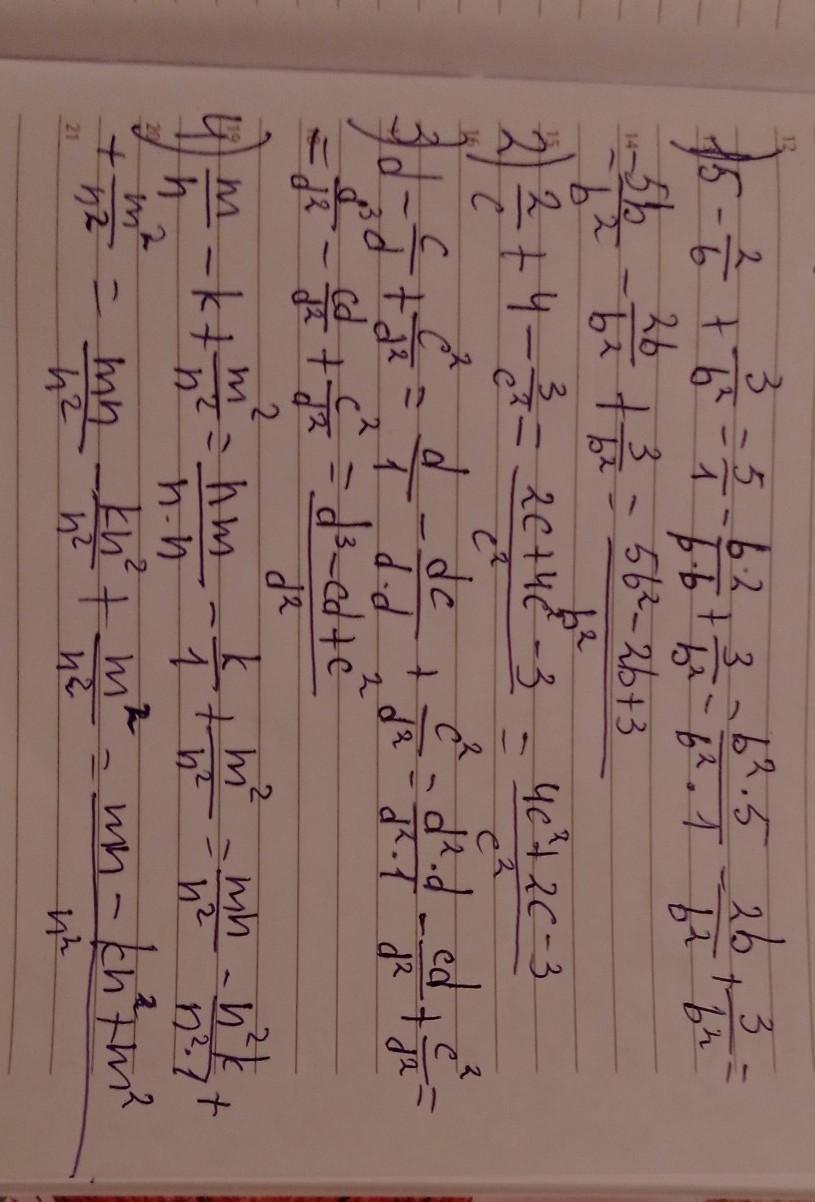 12
1) 5 - 2/b + 3/b² = 5/1 - b·2/b·b + 3/b² = b²·5/b²·1 - 2b/b² + 3/b² =
14 = 5b/b² - 2b/b² + 3/b² = 5b² - 2b + 3/b²
15
2) 2/c + 4 - 3/c² = 2c + 4c² - 3/c² = 4c² + 2c - 3/c²
16
3) d - c/d + c²/d² = d/1 - dc/d·d + c²/d² = d²·d/d²·1 - cd/d² + c²/d² =
= d³/d² - cd/d² + c²/d² = d³ - cd + c²/d²
19
4) m/n - k + m²/n² = nm/n·n - k/1 + m²/n² = mn/n² - n²k/n²·1 +
20
+ m²/n² = mn/n² - kn²/n² + m²/n² = mn - kn² + m²/n²
21